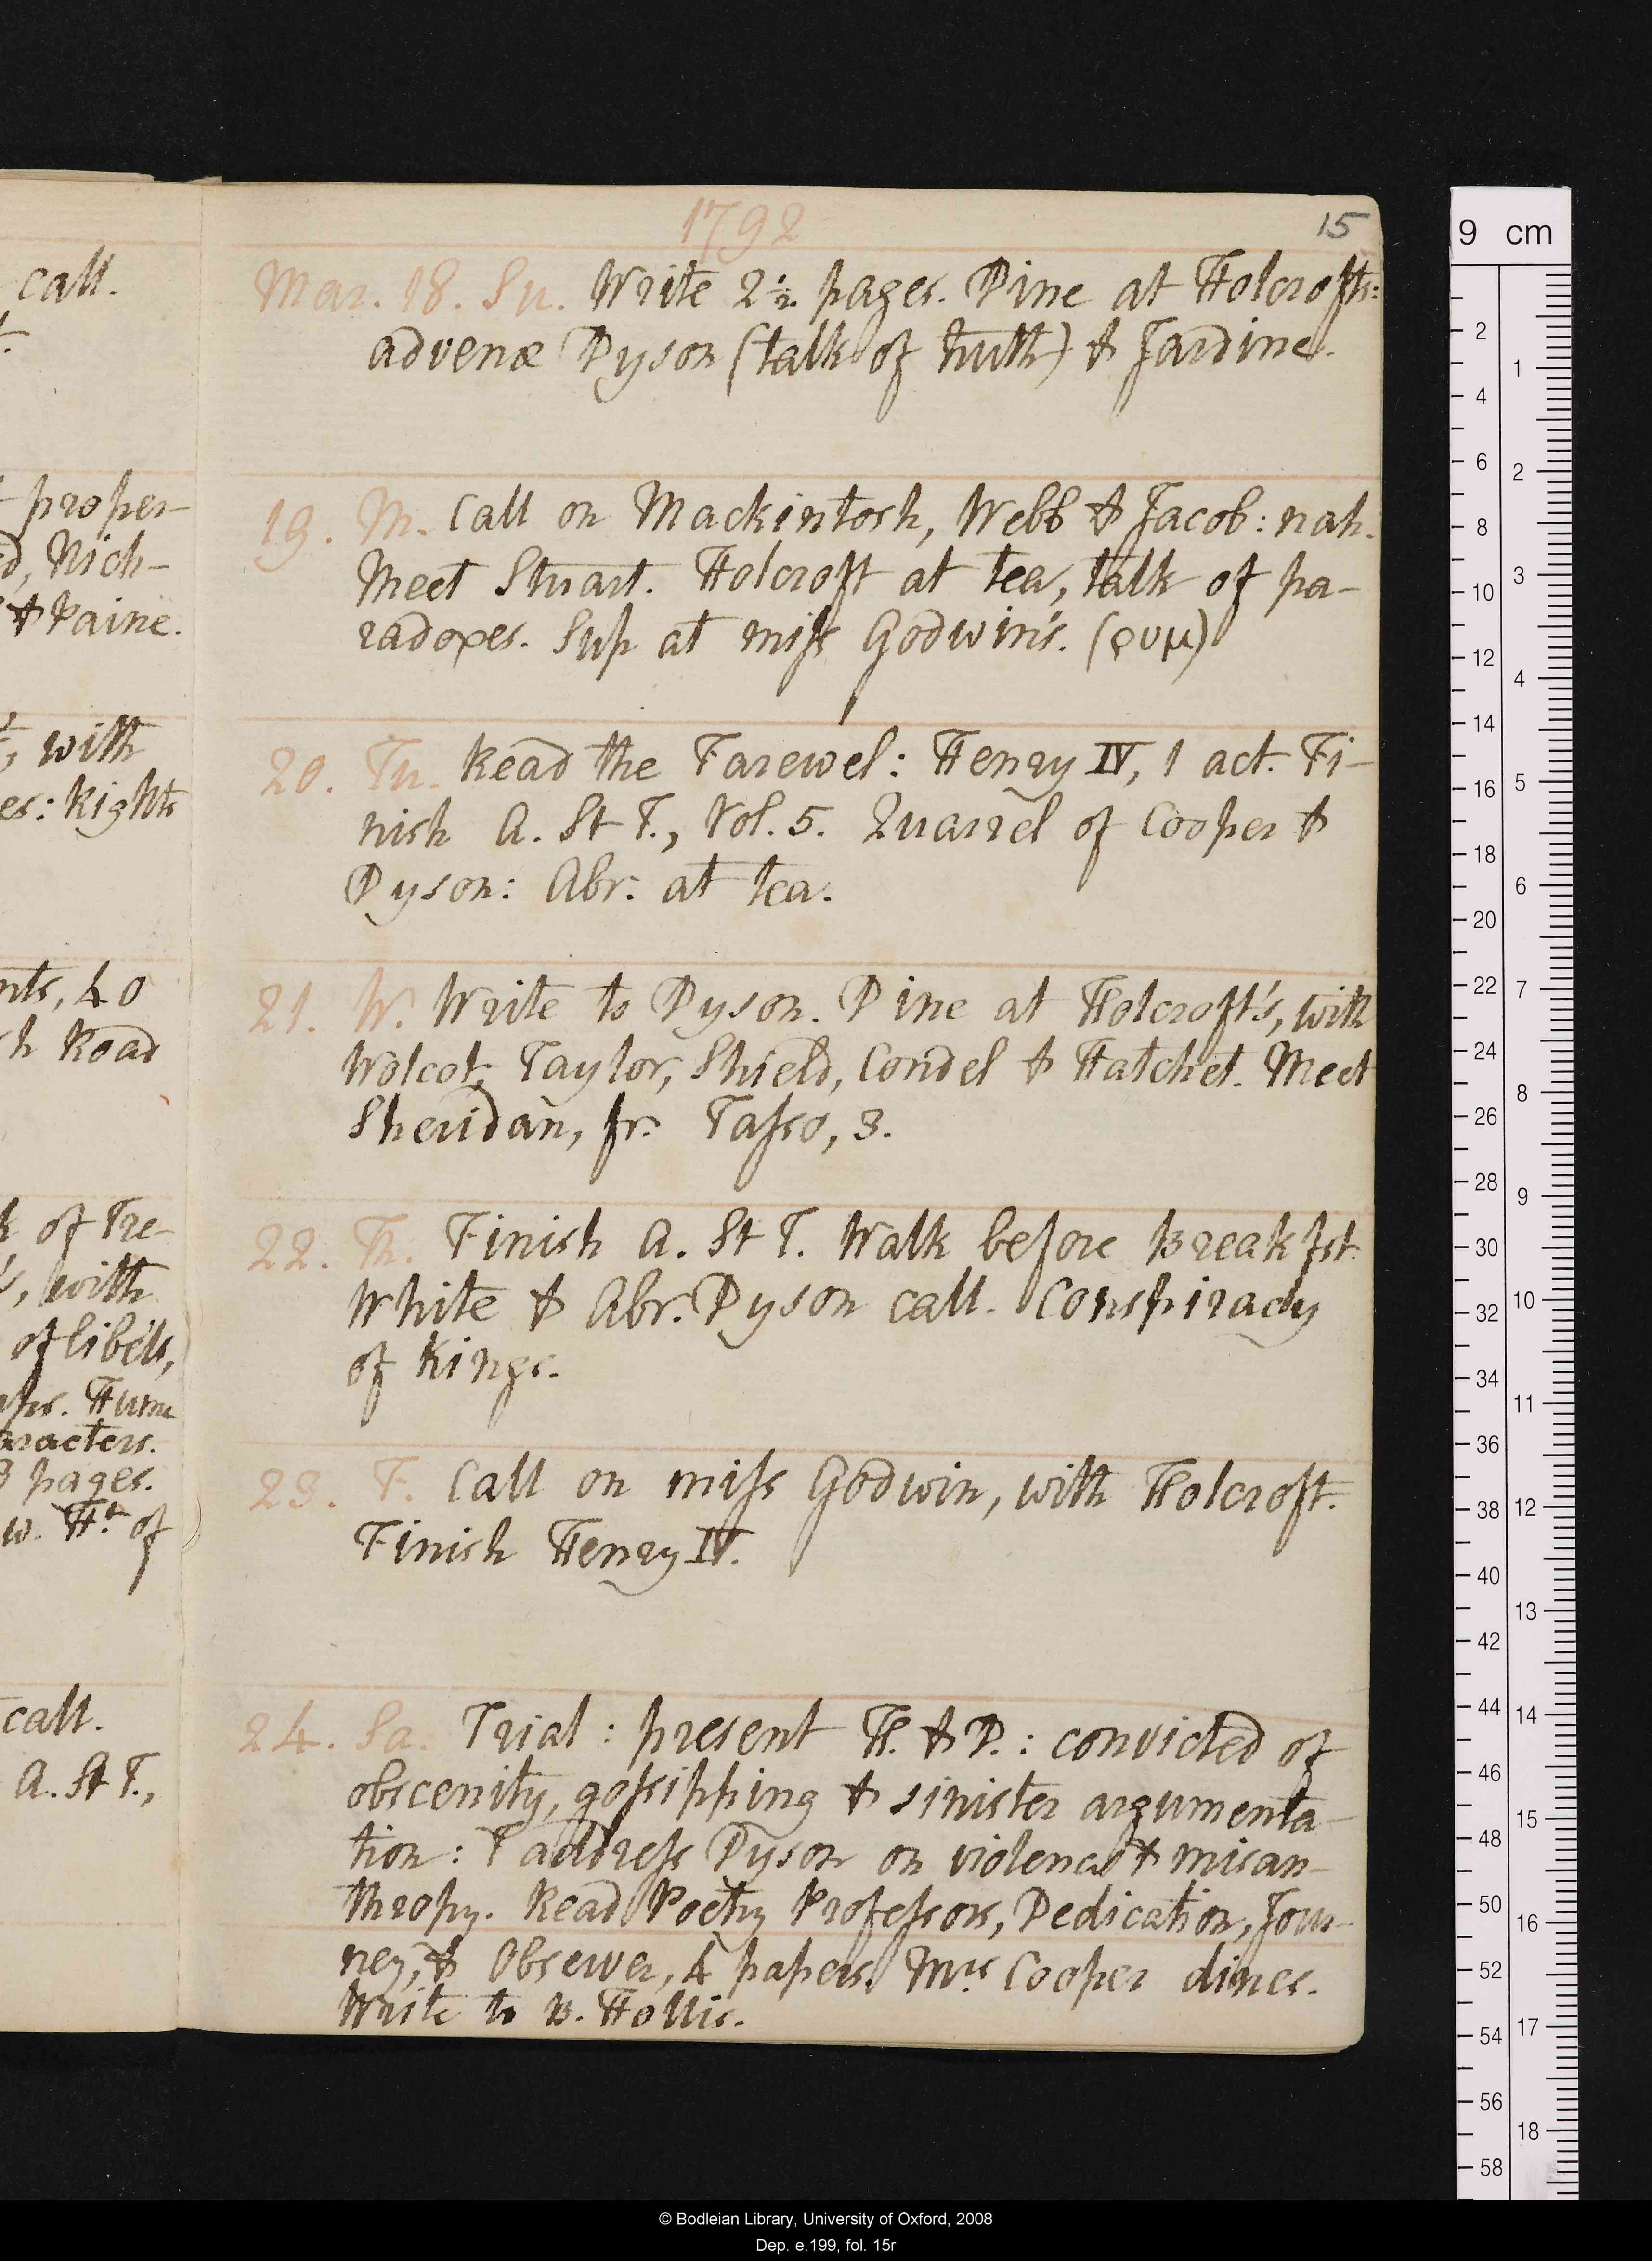 call.
proper-
d, Nich-
& Paine.
, with
es: Rights
nts, 40
h Road
k of Tre-
s, with
of libels,
Hum
aracters.
3 pages.
w. Ht of
call.
A. St T.,
1792
15
Mar. 18. Su. Write 2 1/2 pages. Dine at Holcroft's:
advenæ Dyson (talk of truth) & Jardine.
19. M. Call on Mackintosh, Webb & Jacob: nah.
Meet Stuart. Holcroft at tea, talk of pa-
radoxes. Sup at miss Godwin's. (ρυμ)
20. Tu. Read the Farewel: Henry IV, 1 act. Fi-
nish A. St T., Vol. 5. Quarrel of Cooper &
Dyson: Abr: at tea.
21. W. Write to Dyson. Dine at Holcroft's, with
Wolcot, Taylor, Shield, Condel & Hatchet. Meet
Sheridan, jr. Tasso, 3.
22. Th. Finish A. St T. Walk before breakfst.
White & Abr. Dyson call. Conspiracy
of Kings.
23. F. Call on miss Godwin, with Holcroft.
Finish Henry IV.
24. Sa. Trial: present H. & D.: convicted of
obscenity, gossipping & sinister argumenta-
tion: I address Dyson on violence & misan-
thropy. Read Poetry Professors, Dedication, Jour-
ney, & Observer, 4 papers. Mrs Cooper dines.
Write to B. Hollis.
9 cm
2
4
6
8
10
12
14
16
18
20
22
24
26
28
30
32
34
36
38
40
42
44
46
48
50
52
54
56
58
1
2
3
4
5
6
7
8
9
10
11
12
13
14
15
16
17
18
© Bodleian Library, University of Oxford, 2008
Dep. e.199, fol. 15r